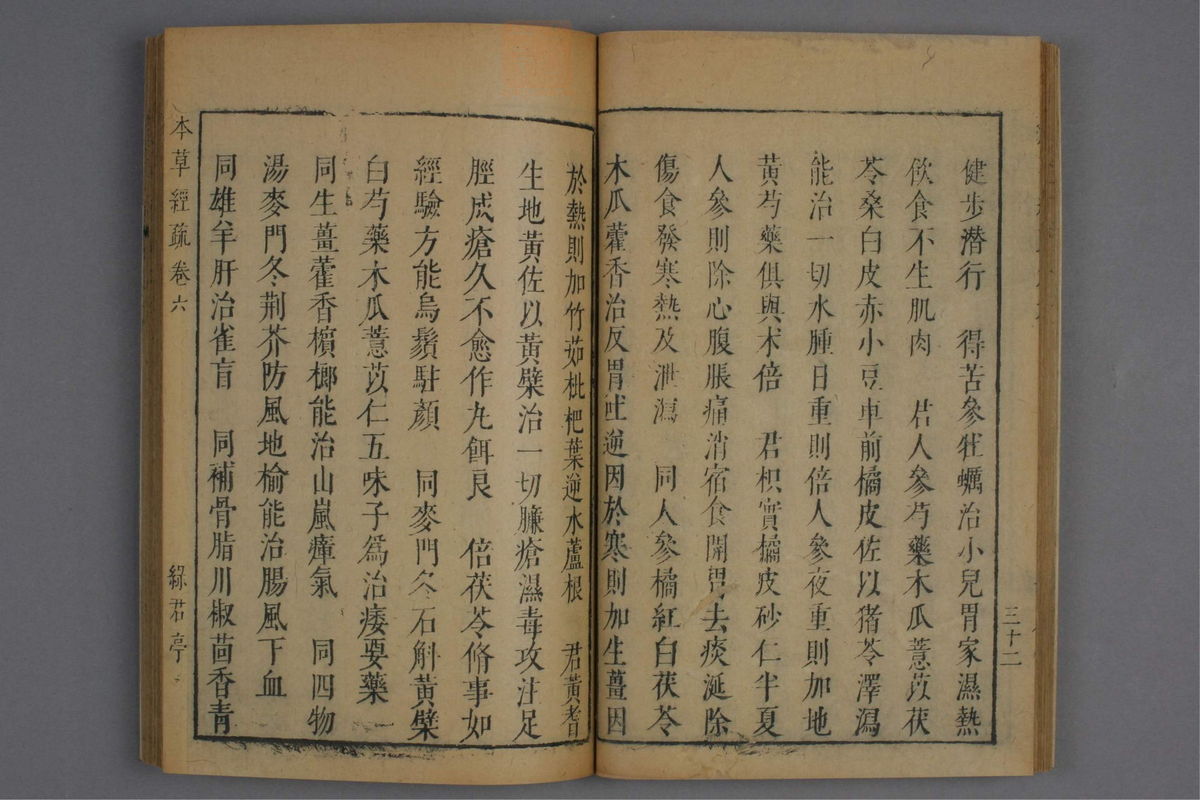 健步潛行　得苦參牡蠣治小兒胃家濕熱
飲食不生肌肉　君人參芍藥木瓜薏苡茯
苓桑白皮赤小豆車前橘皮佐以豬苓澤瀉
能治一切水腫日重則倍人參夜重則加地
黃芍藥俱與术倍　君枳實橘皮砂仁半夏
人參則除心腹脹痛消宿食開胃去痰涎除
傷食發寒熱及泄瀉　同人參橘紅白茯苓
木瓜藿香治反胃吐逆因於寒則加生薑因
三十二
於熱則加竹茹枇杷葉逆水蘆根　君黃耆
生地黃佐以黃檗治一切臁瘡濕毒攻注足
脛成瘡久不愈作丸餌良　倍茯苓脩事如
經驗方能烏鬚駐顏　同麥門冬石斛黃檗
白芍藥木瓜薏苡仁五味子為治痿要藥
同生薑藿香檳榔能治山嵐瘴氣　同四物
湯麥門冬荊芥防風地榆能治腸風下血
同雄羊肝治雀盲　同補骨脂川椒茴香青
本草經疏卷六　綠君亭